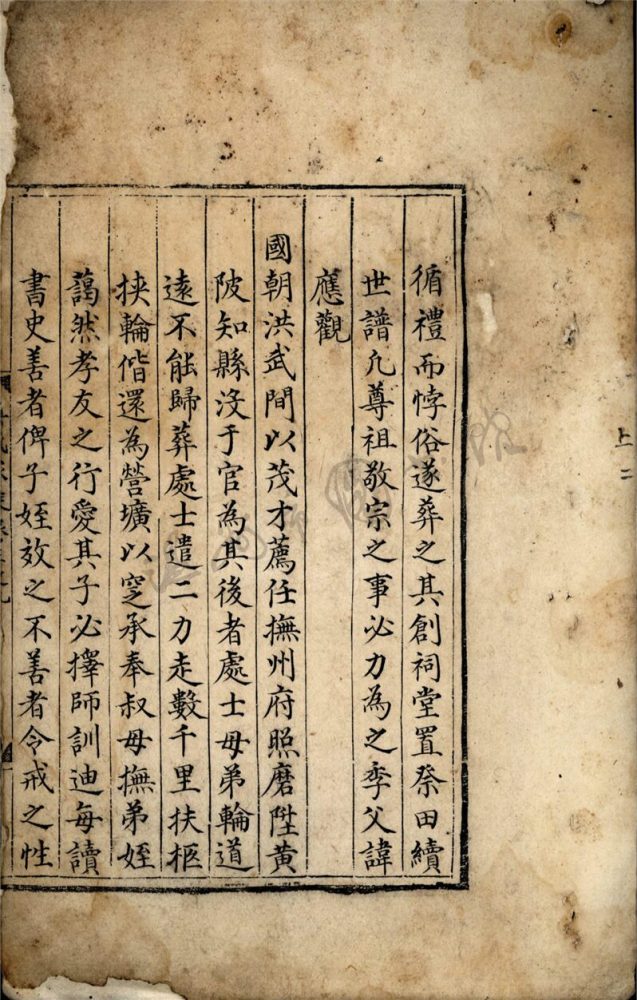 循禮而悖俗遂葬之其創祠堂置祭田續
世譜凢尊祖敬宗之事必力為之季父諱
應觀
國朝洪武間以茂才薦任撫州府照磨陞黄
陂知縣沒于官為其後者處士母弟輪道
逺不能歸葬處士遣二力走數千里扶柩
挾輪偕還為營壙以窆承奉叔母撫弟姪
藹然孝友之行愛其子必擇師訓迪每讀
書史善者俾子姪效之不善者令戒之性
上二